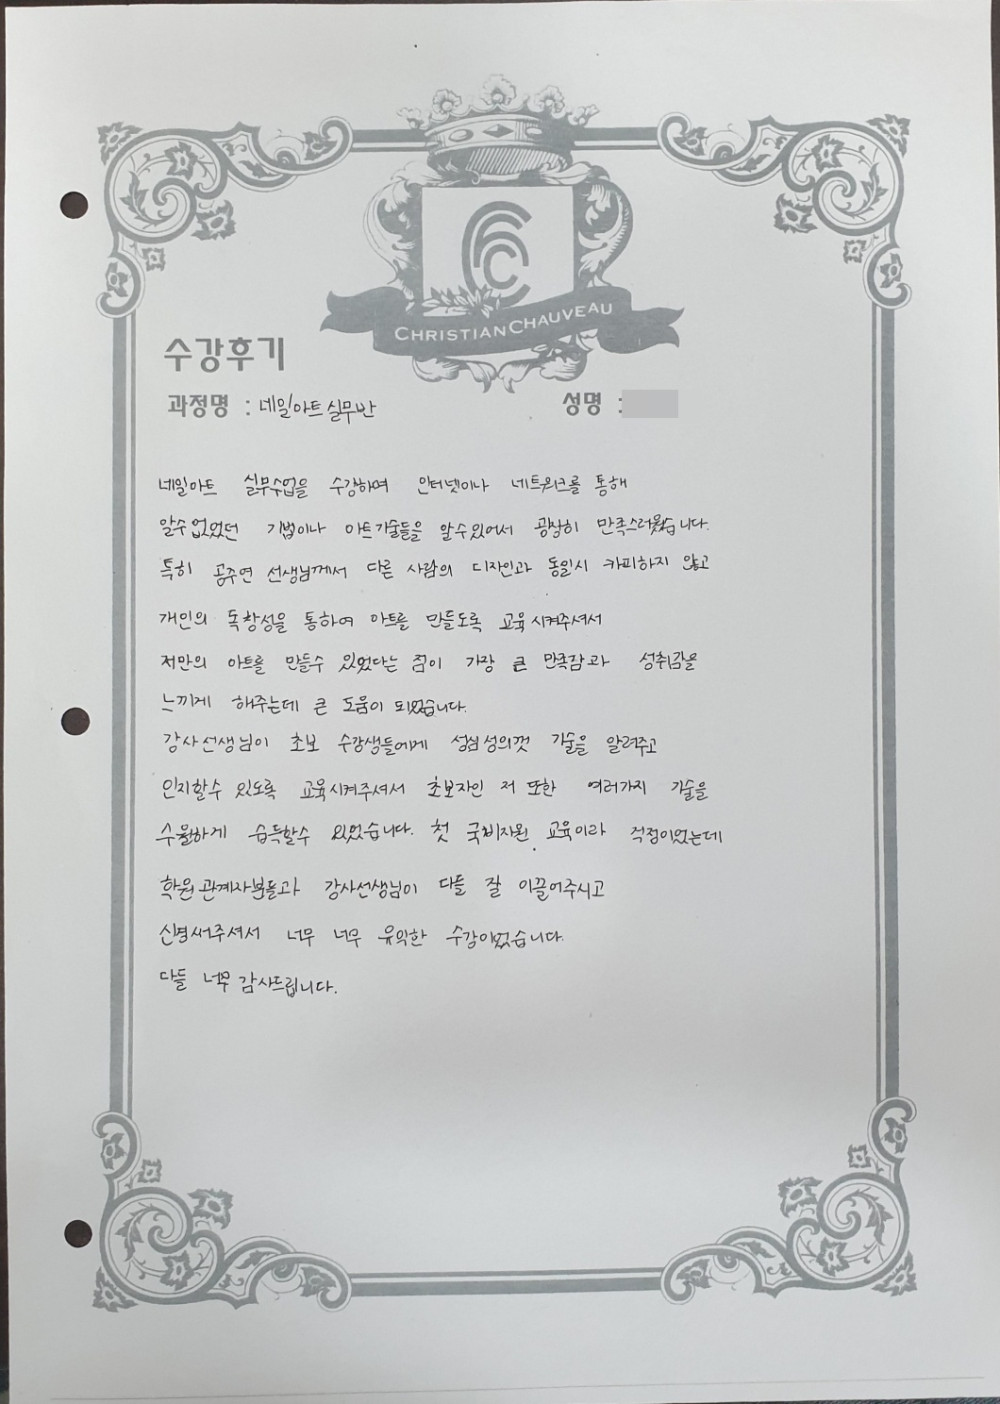 CC
CHRISTIAN CHAUVEAU
수강후기
과정명 : 네일아트 실무반 성명 :
네일아트 실무수업을 수강하며 인터넷이나 네트워크를 통해
알수 없었던 기법이나 아트기술들을 알수있어서 굉장히 만족스러웠습니다.
특히 공주연 선생님께서 다른 사람의 디자인과 동일시 카피하지 않고
개인의 독창성을 통하여 아트를 만들도록 교육시켜주셔서
저만의 아트를 만들수 있었다는 점이 가장 큰 만족감과 성취감을
느끼게 해주는데 큰 도움이 되었습니다.
강사선생님이 초보 수강생들에게 성심성의껏 기술을 알려주고
인지할수 있도록 교육시켜주셔서 초보자인 저 또한 여러가지 기술을
수월하게 습득할수 있었습니다. 첫 국비지원 교육이라 걱정이었는데
학원 관계자분들과 강사선생님이 다들 잘 이끌어주시고
신경써주셔서 너무 너무 유익한 수강이었습니다.
다들 너무 감사드립니다.